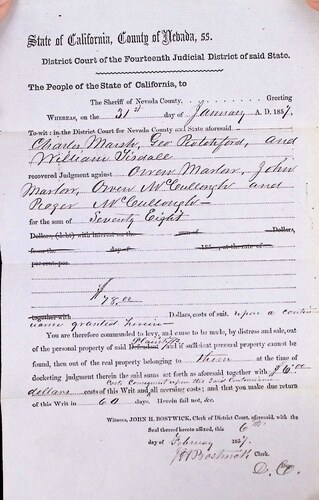 State of California, County of Nevada, ss.
District Court of the Fourteenth Judicial District of said State.
The People of the State of California, to
The Sheriff of Nevada County, Greeting
WHEREAS, on the 31st day of January A. D. 1857,
To-wit: in the District Court for Nevada County and State aforesaid
Charles Marsh, Geo Rotchford, and
William Tisdall
recovered Judgment against Owen Marlow, John
Marlow, Owen McCullough and
Roger McCullough
for the sum of Seventy Eight
Dollars, (debt) with interest on the Dollars,
from the day of 185 , at the rate of
per cent. per
$78.00
together with Dollars, costs of suit. upon a contin
uance granted herein
You are therefore commanded to levy, and cause to be made, by distress and sale, out
of the personal property of said Defendant Plaintiffs and if sufficient personal property cannot be
found, then out of the real property belonging to them at the time of
docketing judgment therein the said sums set forth as aforesaid together with $6.00
Costs Consequent upon the said Continuance
dollars costs of this Writ and all accruing costs; and that you make due
return of this Writ in 60 days. Herein fail not, &c.
Witness, JOHN H. BOSTWICK, Clerk of District Court, aforesaid, with the
Seal thereof hereto affixed, this 6th
day of February 1857.
J H Bostwick Clerk.
D. C.